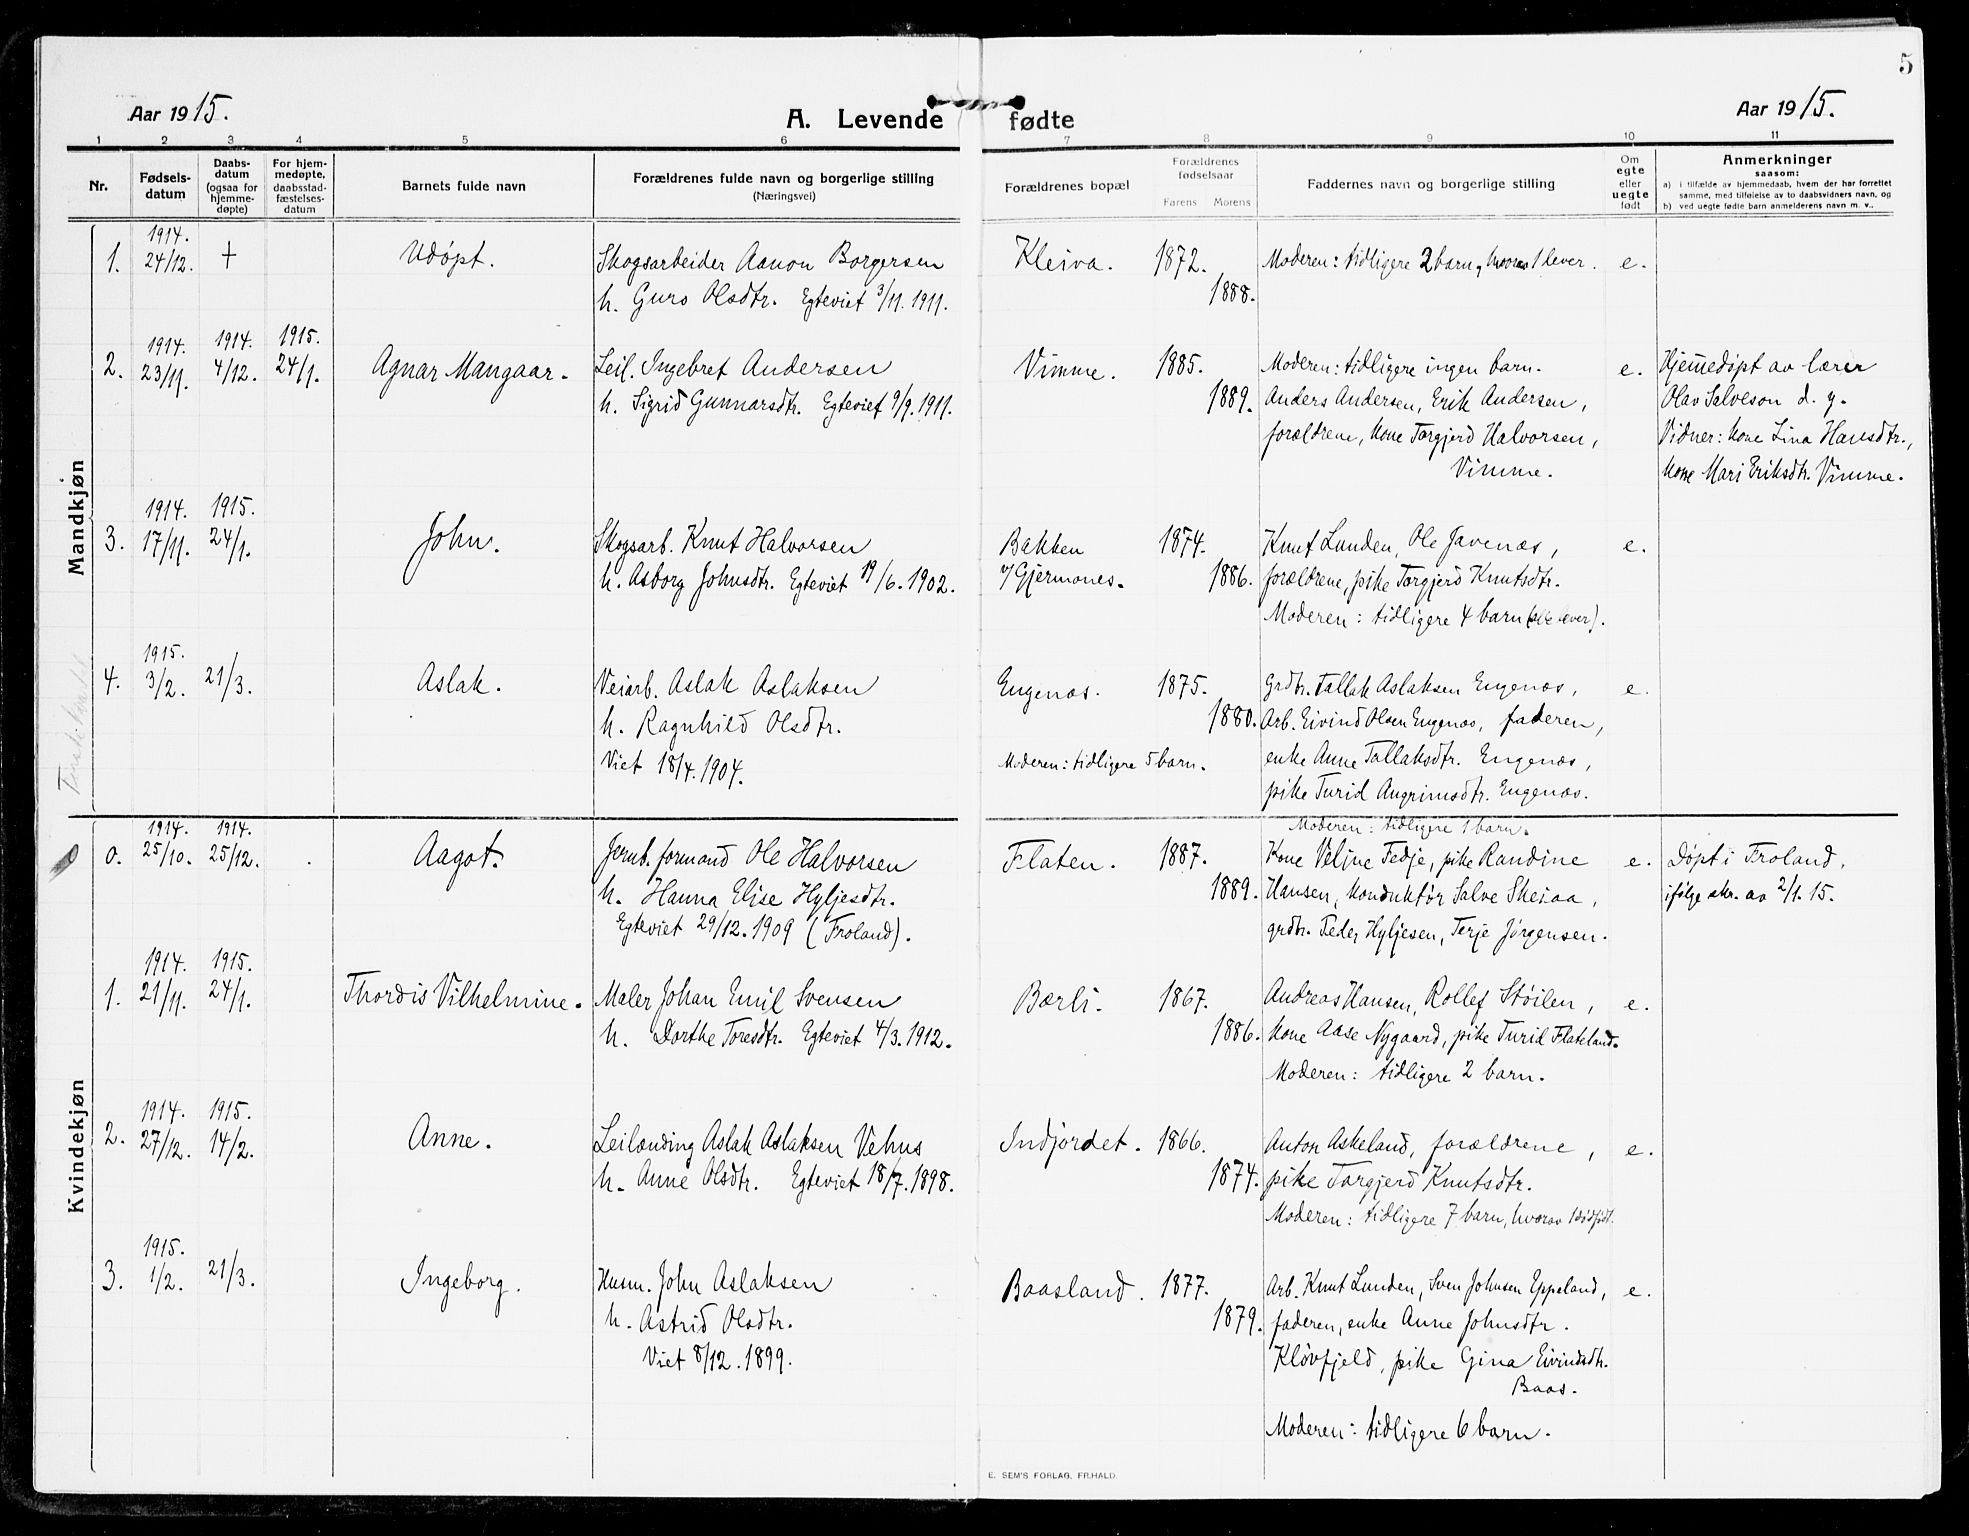 5
Aar 1915.
A. Levende fødte
Aar 1915.
1 2 3 4 5 6 7 8 9 10 11
Nr.
Fødselsdatum
Daabsdatum (ogsaa for hjemmedøpte)
For hjemmedøpte, daabsstadfæstelsesdatum
Barnets fulde navn
Forældrenes fulde navn og borgerlige stilling
(Næringsvei)
Forældrenes bopæl
Forældrenes fødselsaar
Farens Morens
Faddernes navn og borgerlige stilling
Om egte eller uegte født
Anmerkninger
saasom:
a) i tilfælde av hjemmedaab, hvem der har forrettet
samme, med tilføielse av to daabsvidners navn, og
b) ved uegte fødte barn anmelderens navn m. v.
Mandkjøn
1. 1914. 24/12. + Udøpt.
Skogsarbeider Aanon Borgersen
h. Guro Olsdtr. Egteviet 3/11. 1911.
Kleiva. 1872. 1888.
Moderen: tidligere 2 barn, hvorav 1 lever. e.
2. 1914. 23/11. 1914. 4/12. 1915. 24/1. Agnar Mangaar.
Leil. Ingebret Andersen
h. Sigrid Gunnarsdtr. Egteviet 9/9. 1911.
Vimme. 1885. 1889.
Moderen: tidligere ingen barn. e.
Anders Andersen, Erik Andersen,
forældrene, kone Torgjerd Halvorsen,
Vimme.
Hjemmedøpt av lærer
Olav Salveson d. y.
Vidner: kone Lina Hansdtr.,
kone Mari Eriksdtr. Vimme.
3. 1914. 17/11. 1915. 24/1. John.
Skogsarb. Knut Halvorsen
h. Asborg Johnsdtr. Egteviet 19/6. 1902.
Bakken
v/Gjermones. 1874. 1886.
Knut Lunden, Ole Javenæs, e.
forældrene, pike Torgjerd Knutsdtr.
Moderen: tidligere 4 barn (alle lever).
4. 1915. 3/2. 21/3. Aslak.
Veiarb. Aslak Aslaksen
h. Ragnhild Olsdtr.
Viet 18/4. 1904.
Engenæs. 1875. 1880.
Moderen: tidligere 5 barn.
Grdbr. Tallak Aslaksen Engenæs, e.
Arb. Eivind Olsen Engenæs, faderen,
enke Anne Tallaksdtr. Engenæs,
pike Turid Angrimsdtr. Engenæs.
Kvindekjøn
0. 1914. 25/10. 1914. 25/12. Aagot.
Jernb. formand Ole Halvorsen
h. Hanna Elise Hyljesdtr.
Egteviet 29/12. 1909 (Froland).
Flaten. 1887. 1889.
Moderen: tidligere 1 barn.
Kone Veline Fedje, pike Randine e.
Hansen, konduktør Salve Skeiaa,
grdbr. Peder Hyljesen, Terje Jørgensen.
Døpt i Froland,
ifølge skr. av 2/1. 15.
1. 1914. 21/11. 1915. 24/1. Thordis Vilhelmine.
Maler Johan Emil Svensen
h. Dorthe Toresdtr. Egteviet 4/3. 1912.
Bærli. 1867. 1886.
Andreas Hansen, Rollef Støilen, e.
kone Aase Nygaard, pike Turid Flateland.
Moderen: tidligere 2 barn.
2. 1914. 27/12. 1915. 14/2. Anne.
Leilending Aslak Aslaksen Vehus
h. Anne Olsdtr. Egteviet 18/7. 1898.
Indjordet. 1866. 1874.
Anton Askeland, forældrene, e.
pike Torgjerd Knutsdtr.
Moderen: tidligere 7 barn, hvorav 1 dødfødt.
3. 1915. 1/2. 21/3. Ingeborg.
Husm. John Aslaksen
h. Astrid Olsdtr.
Viet 8/12. 1899.
Baasland. 1877. 1879.
Arb. Knut Lunden, Sven Johnsen Eppeland, e.
faderen, enke Anne Johnsdtr.
Kløvfjeld, pike Gina Eivindsdtr.
Baas.
Moderen: tidligere 6 barn.
E. SEM'S FORLAG, FR.HALD.